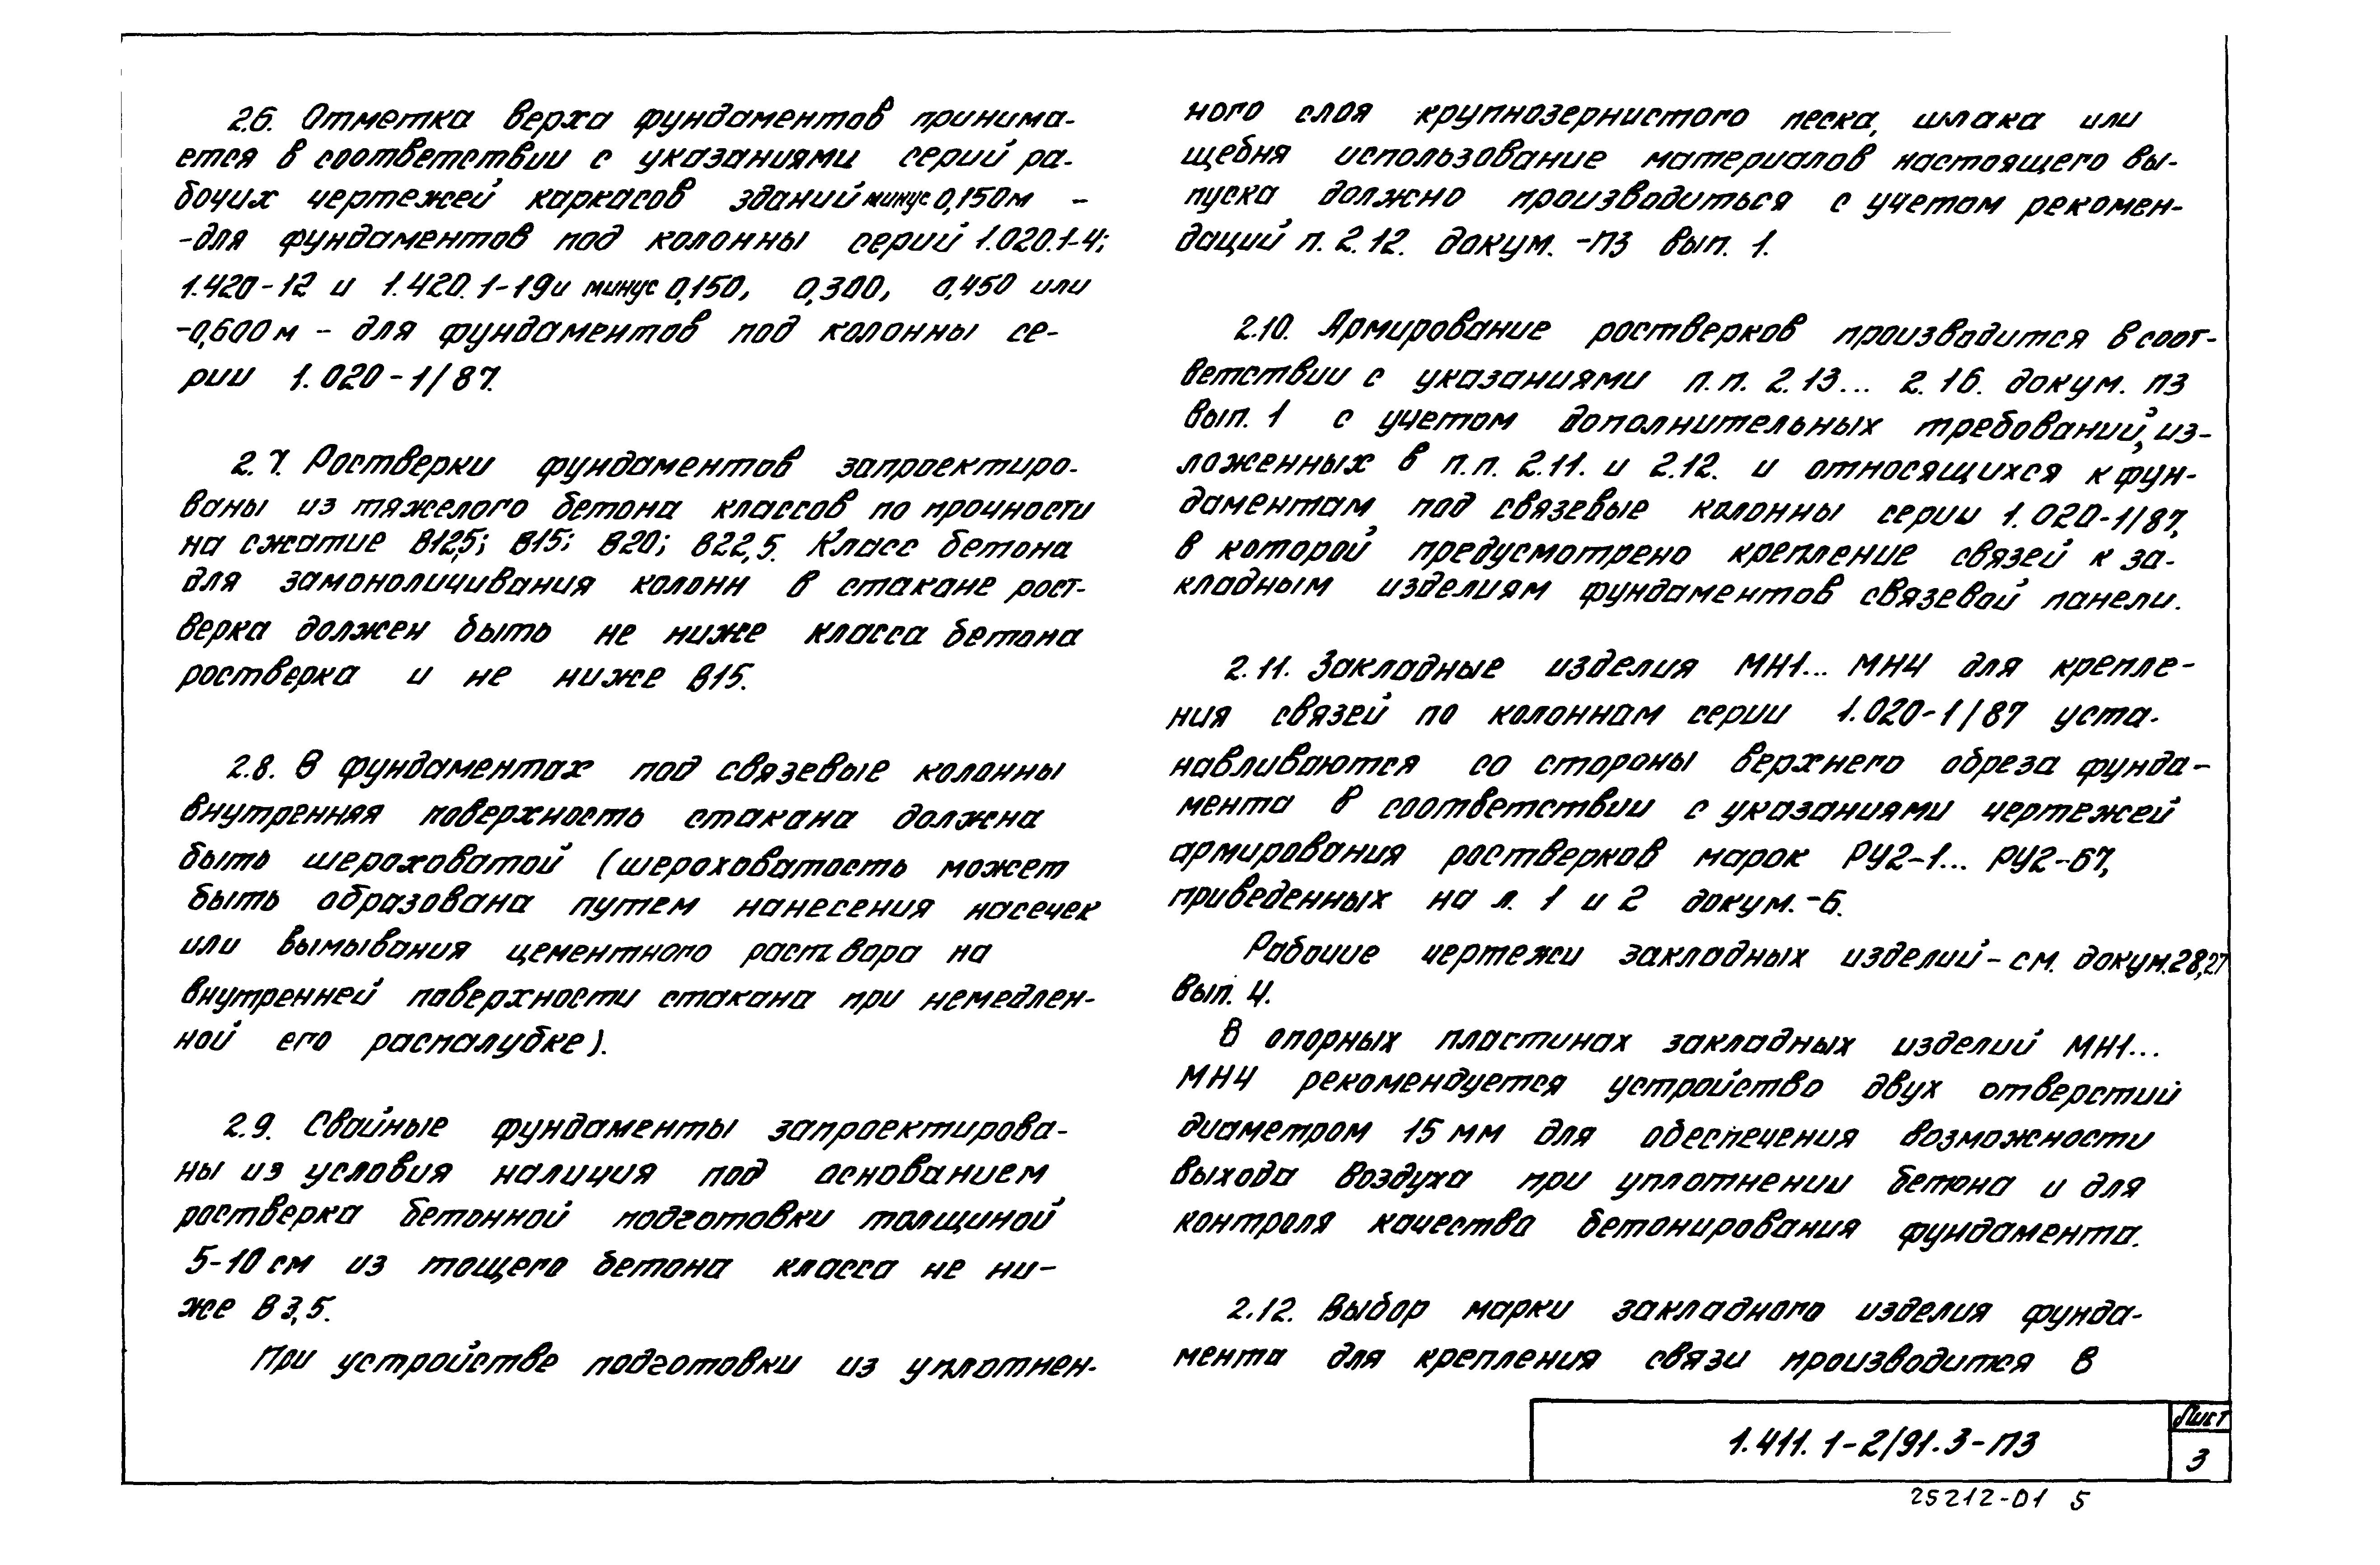 2.6. Отметка верха фундаментов принима-
ется в соответствии с указаниями серий ра-
бочих чертежей каркасов зданий минус 0,150м -
-для фундаментов под колонны серий 1.020.1-4;
1.420-12 и 1.420.1-19 и минус 0,150, 0,300, 0,450 или
-0,600м - для фундаментов под колонны се-
рии 1.020-1/87.
2.7. Ростверки фундаментов запроектиро-
ваны из тяжелого бетона классов по прочности
на сжатие В12,5; В15; В20; В22,5. Класс бетона
для замоноличивания колонн в стакане рост-
верка должен быть не ниже класса бетона
ростверка и не ниже В15.
2.8. В фундаментах под связевые колонны
внутренняя поверхность стакана должна
быть шероховатой (шероховатость может
быть образована путем нанесения насечек
или вымывания цементного раствора на
внутренней поверхности стакана при немедлен-
ной его распалубке).
2.9. Свайные фундаменты запроектирова-
ны из условия наличия под основанием
ростверка бетонной подготовки толщиной
5-10 см из тощего бетона класса не ни-
же В 3,5.
При устройстве подготовки из уплотнен-
ного слоя крупнозернистого песка, шлака или
щебня использование материалов настоящего вы-
пуска должно производиться с учетом рекомен-
даций п. 2.12. докум. -ПЗ вып. 1.
2.10. Армирование ростверков производится в соот-
ветствии с указаниями п.п. 2.13... 2.16. докум. ПЗ
вып. 1 с учетом дополнительных требований, из-
ложенных в п.п. 2.11. и 2.12. и относящихся к фун-
даментам под связевые колонны серии 1.020-1/87,
в которой предусмотрено крепление связей к за-
кладным изделиям фундаментов связевой панели.
2.11. Закладные изделия МН1... МН4 для крепле-
ния связей по колоннам серии 1.020-1/87 уста-
навливаются со стороны верхнего обреза фунда-
мента в соответствии с указаниями чертежей
армирования ростверков марок РУ2-1... РУ2-67,
приведенных на л. 1 и 2 докум. -6.
Рабочие чертежи закладных изделий - см. докум. 28,27
Вып. 4.
В опорных пластинах закладных изделий МН1...
МН4 рекомендуется устройство двух отверстий
диаметром 15 мм для обеспечения возможности
выхода воздуха при уплотнении бетона и для
контроля качества бетонирования фундамента.
2.12. Выбор марки закладного изделия фунда-
мента для крепления связи производится в
1.411.1-2/91.3-ПЗ
Лист
3
25212-01 5